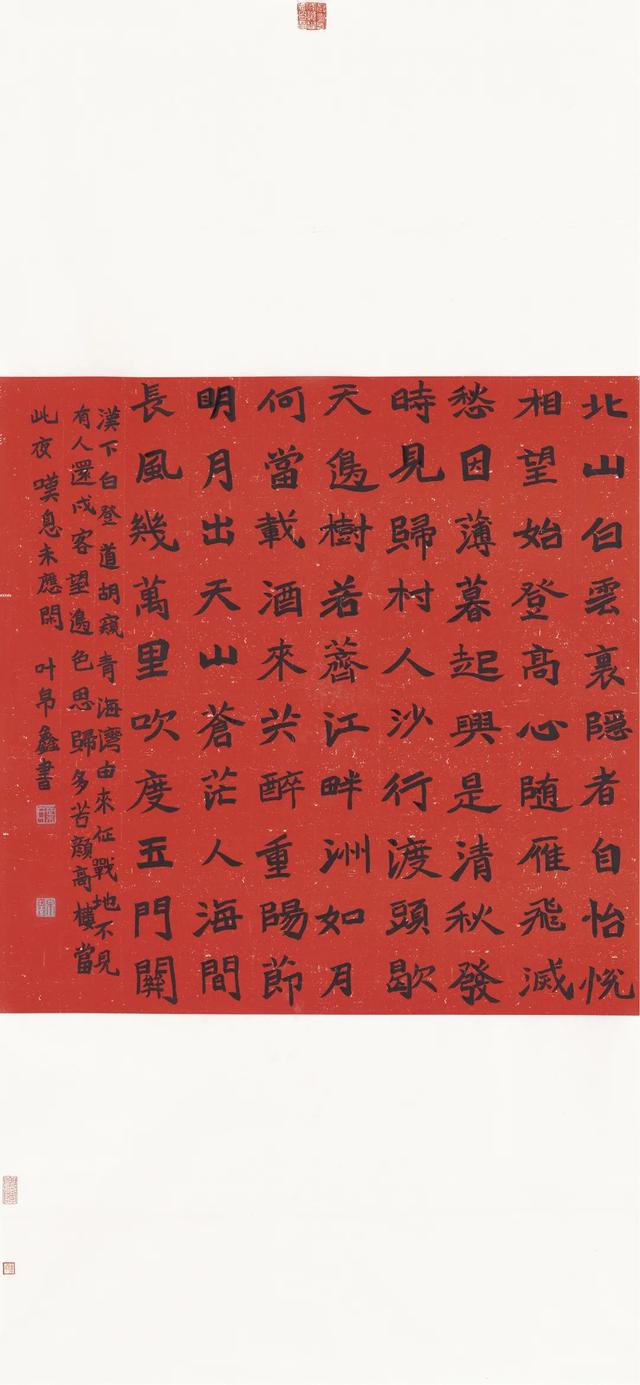 北山白雲裏隱者自怡悅
相望始登高心随雁飛滅
愁因薄暮起興是清秋發
時見歸村人沙行渡頭歇
天邊樹若薺江畔洲如月
何當載酒來共醉重陽節
明月出天山蒼茫人海間
長風幾萬里吹度玉門關
漢下白登道胡窺青海灣由來征戰地不見
有人還戍客望邊色思歸多苦顏高樓當
此夜嘆息未應閑 叶帛鑫書